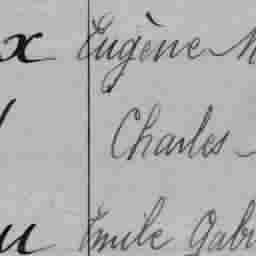 x Eugène M
Charles
u Emile Gabr